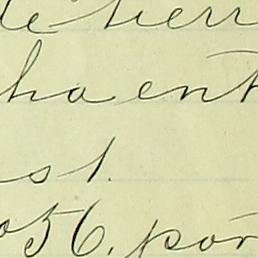 de tierr
ha ent
st.
o 56. por